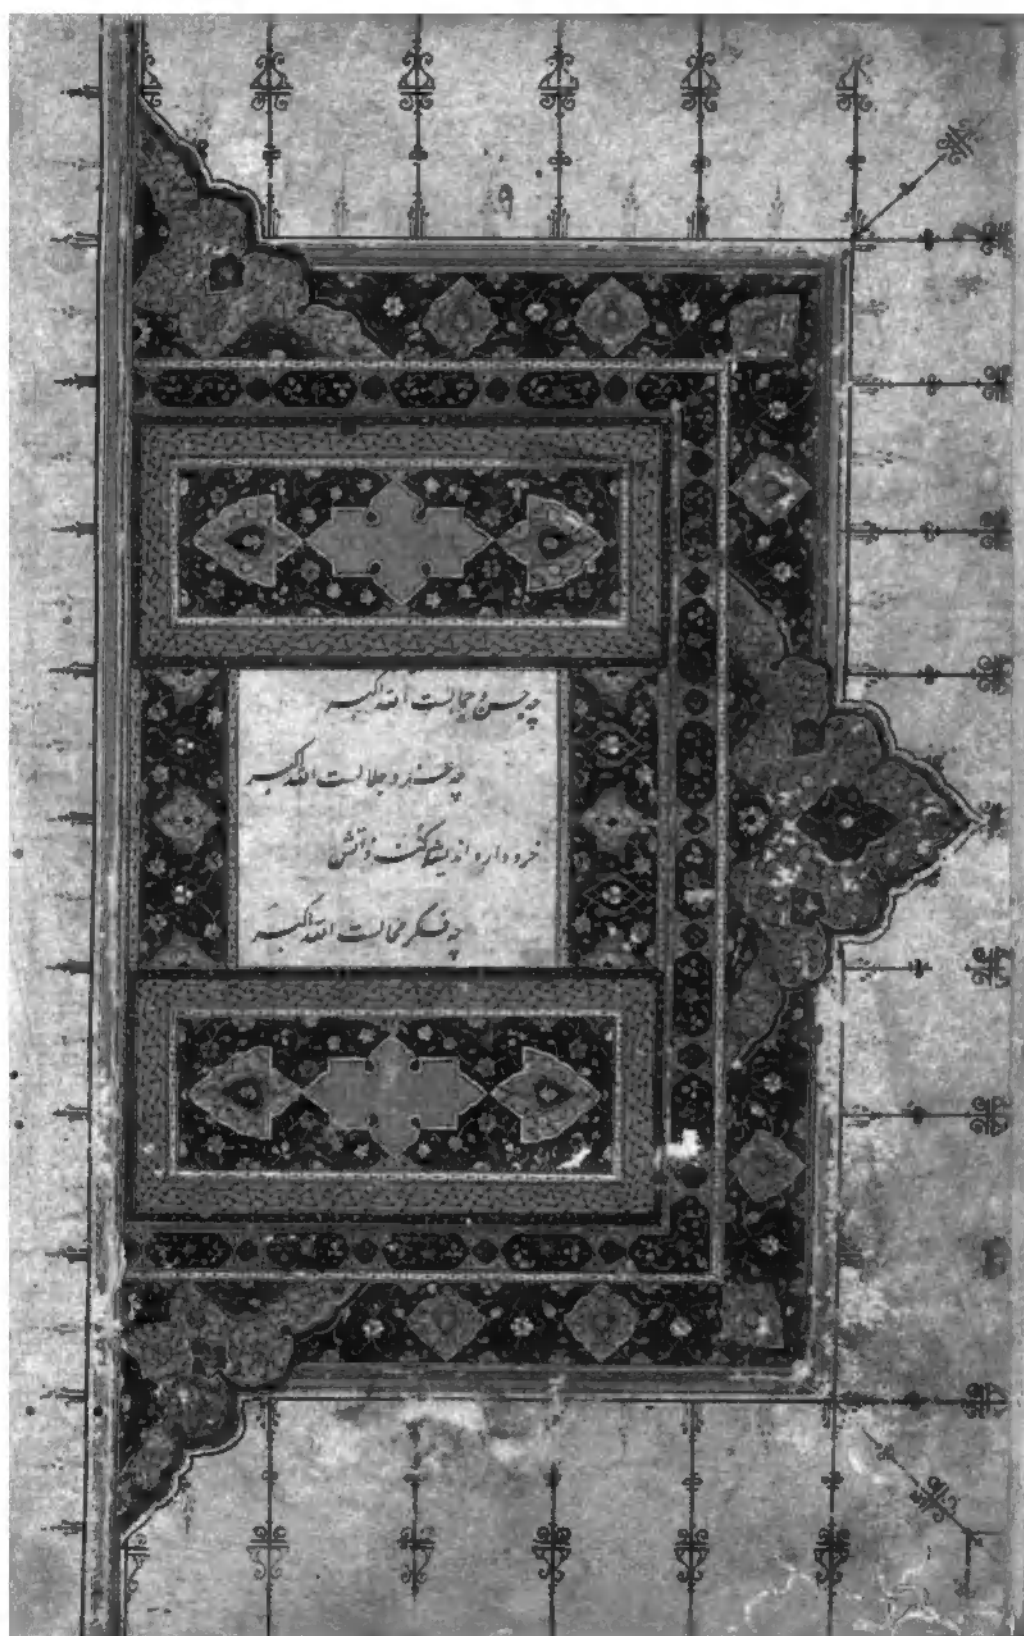 چه حسن و جمالست الله اکبر
چه و جلالست الله اکبر
خرد دارد اندیشهٔ ذاتش
چه فکر محالست الله اکبر